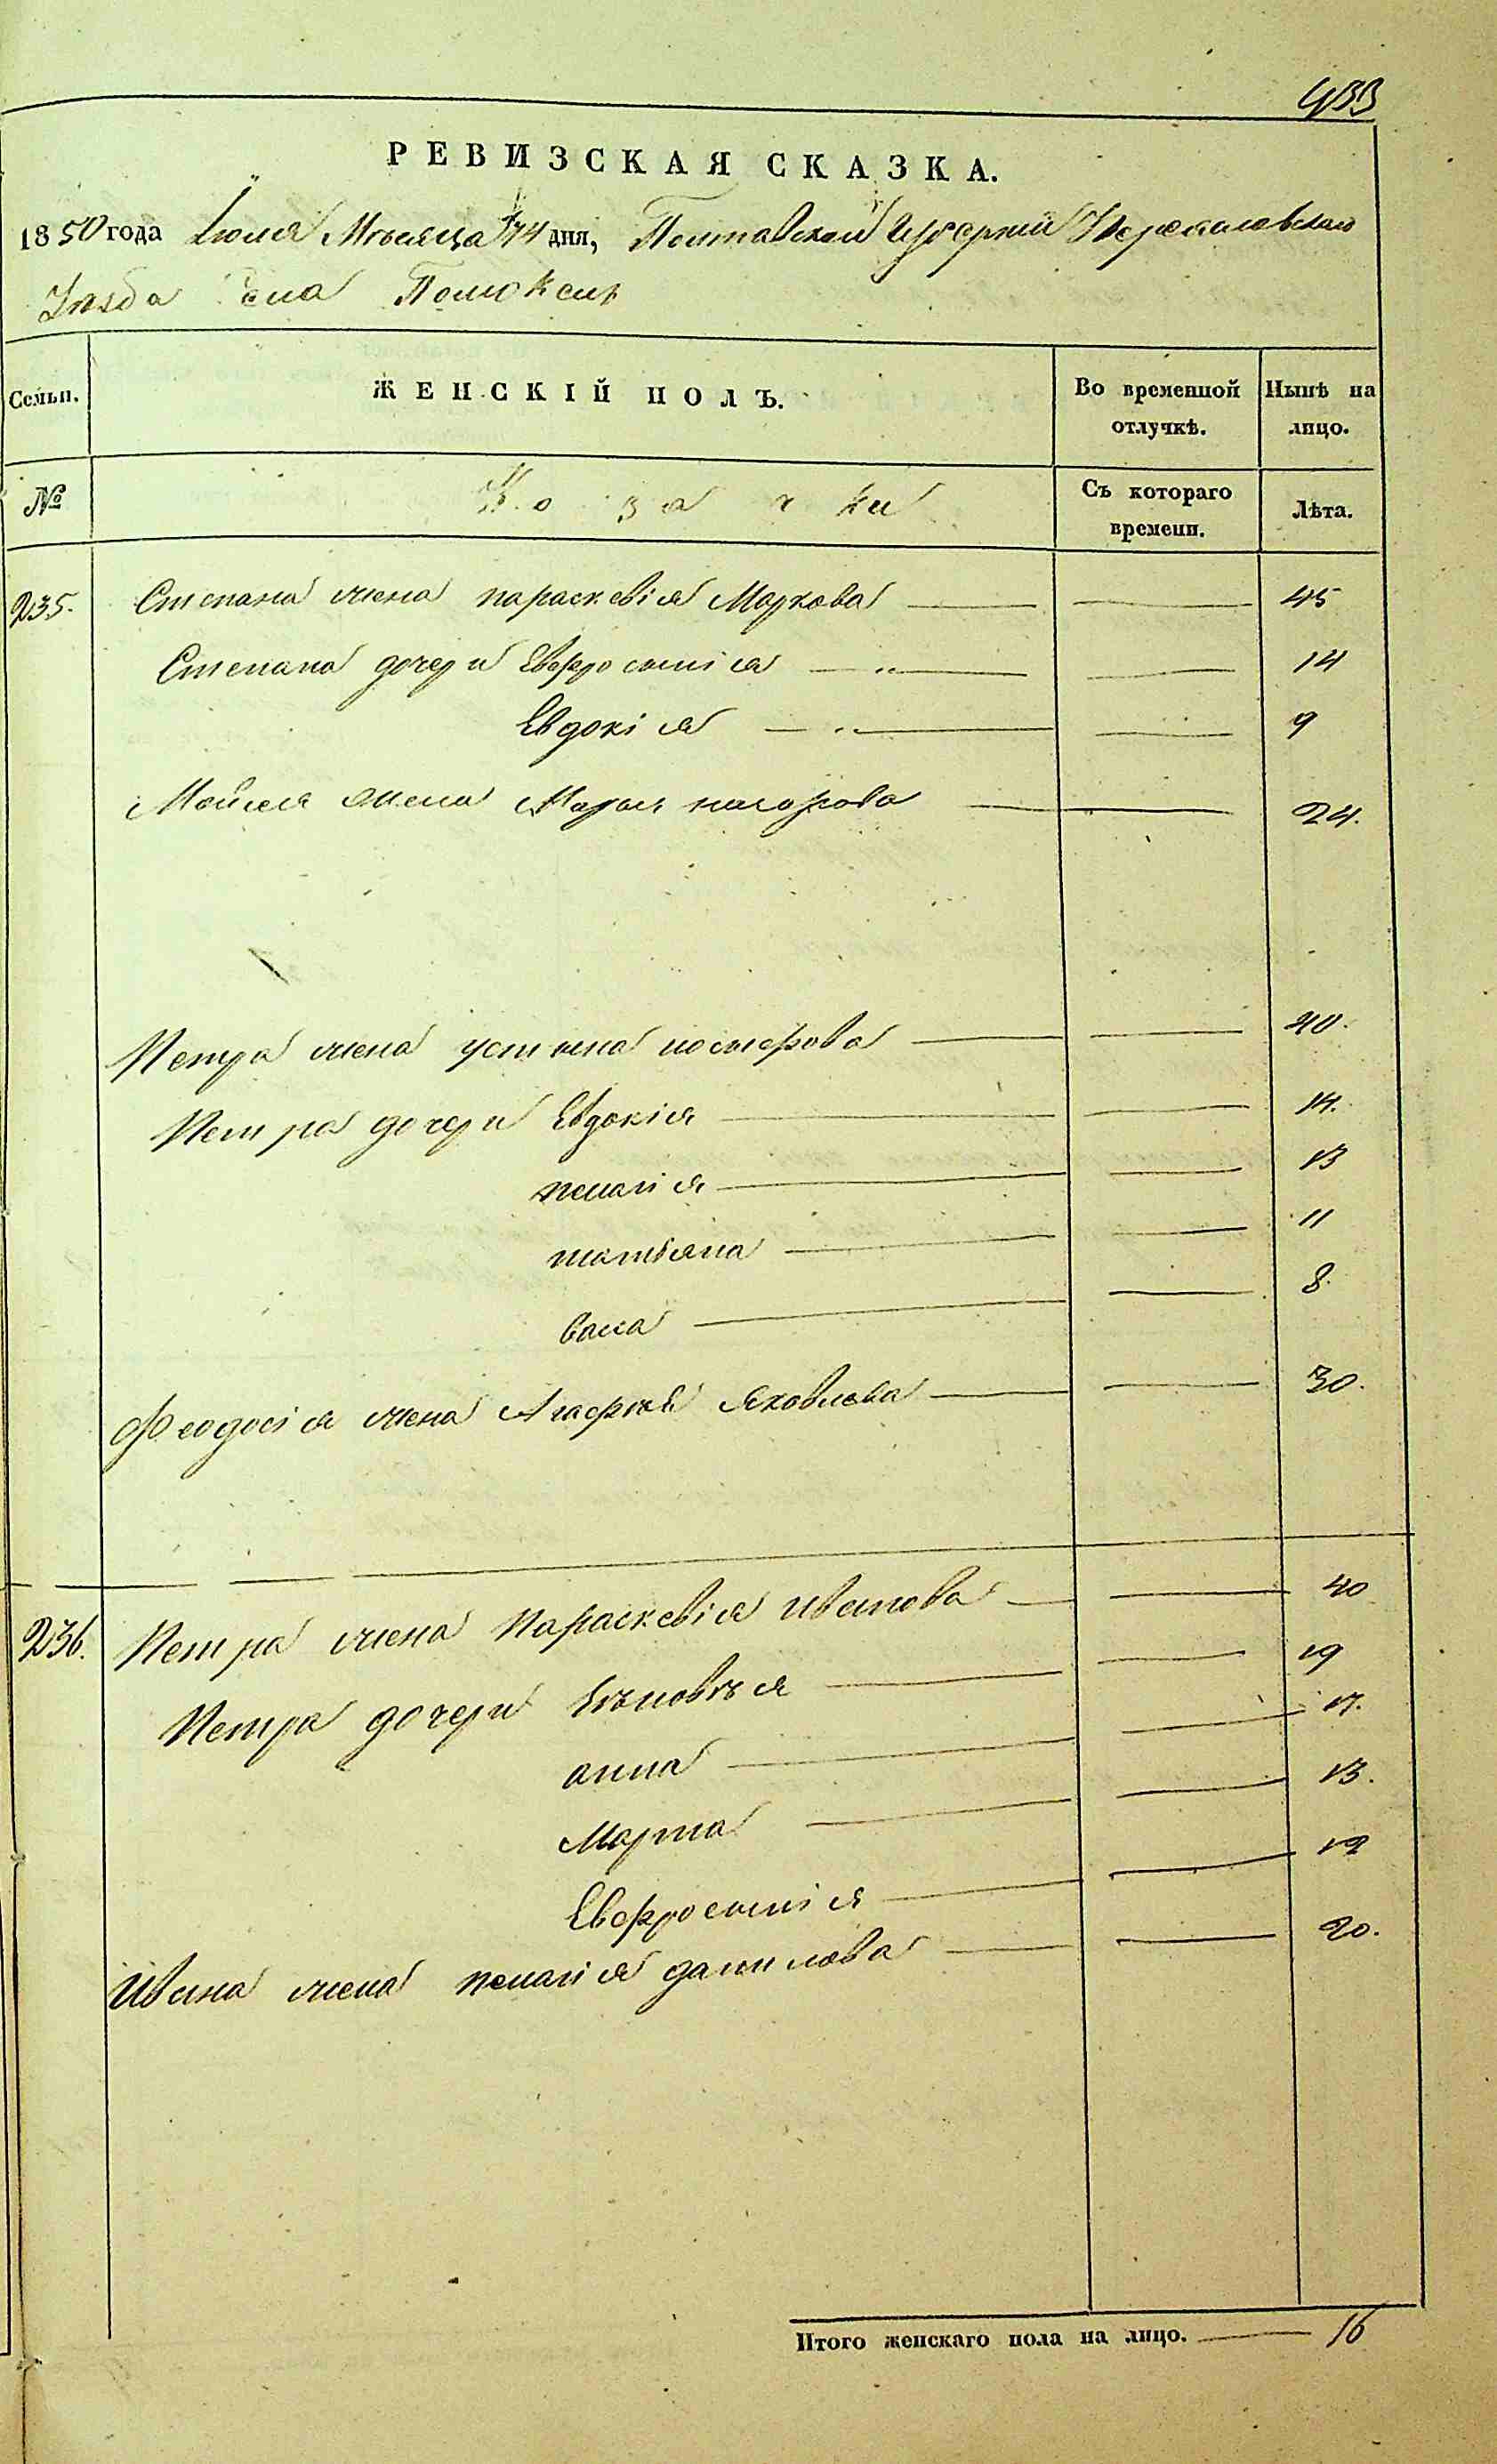 433
РЕВИЗСКАЯ СКАЗКА.
1850 года Июля Мѣсяца 14 дня, Полтавской Губерніи Переяславскаго
Уѣзда Села Помоклей
Семьи. ЖЕНСКІЙ ПОЛЪ. Во временной отлучкѣ. Нынѣ на лицо.
№ Козачки Съ котораго времени. Лѣта.
235. Степана жена параскевія Маркова 45
Степана дочери Евфросинія 14
Евдокія 9
Мойсея жена Марья 24.
Петра жена устина 40.
Петра дочери Евдокія 14.
пелагія 13
татіяна 11
васа 8.
Феодосія жена Агафія Яковлева 30.
236. Петра жена Параскевія иванова 40
Петра дочери 19
анна 17.
Марта 13.
Евфросинія 12
Ивана жена пелагія данилова 20.
Итого женскаго пола на лицо. 16